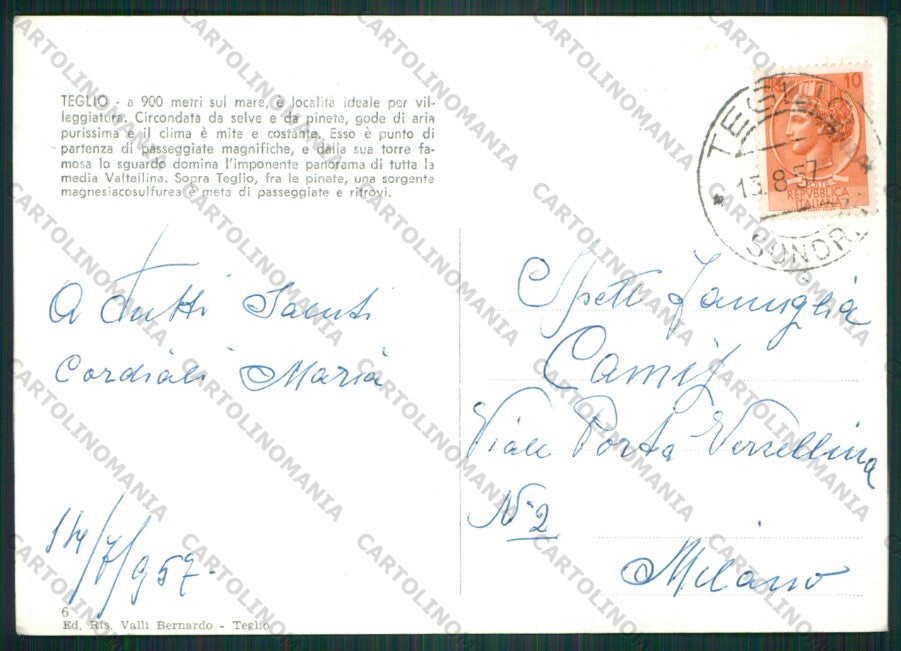 TEGLIO - a 900 metri sul mare, è località ideale per vil-
leggiatura. Circondata da selve e da pinete, gode di aria
purissima e il clima è mite e costante. Esso è punto di
partenza di passeggiate magnifiche, e dalla sua torre fa-
mosa lo sguardo domina l'imponente panorama di tutta la
media Valtellina. Sopra Teglio, fra le pinete, una sorgente
magnesiacosulfurea è meta di passeggiate e ritrovi.
10
POSTE
REPVBBLICA
ITALIANA
TEGLIO
13.8.57
SONDRI
A tutti Saluti
Cordiali Maria
14/7/957.
Spett Famiglia
Viale Porta Verzellina
N° 2
Milano
6
Ed. Ris. Valli Bernardo - Teglio
CARTOLINOMANIA